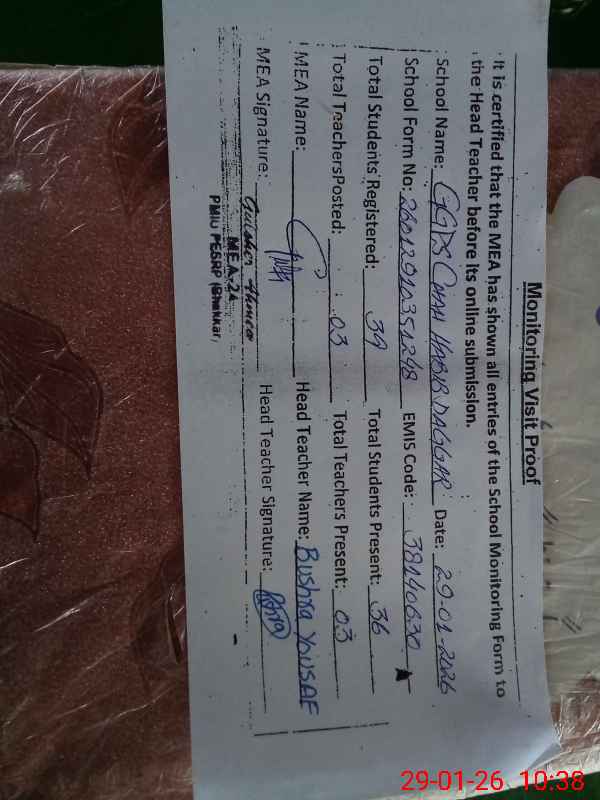 Monitoring Visit Proof
It is certified that the MEA has shown all entries of the School Monitoring Form to
the Head Teacher before its online submission.
School Name: GGPS CHAH HABIB DAGGAR Date: 29-01-2026
School Form No: EMIS Code: 38140630
Total Students Registered: 39 Total Students Present: 36
Total TeachersPosted: 03 Total Teachers Present: 03
MEA Name: Head Teacher Name: Bushra YOUSAF
MEA Signature: Head Teacher Signature:
Gulsher Ahmed
MEA-24
PMIU PESRP (Bhakkar)
29-01-26 10:38